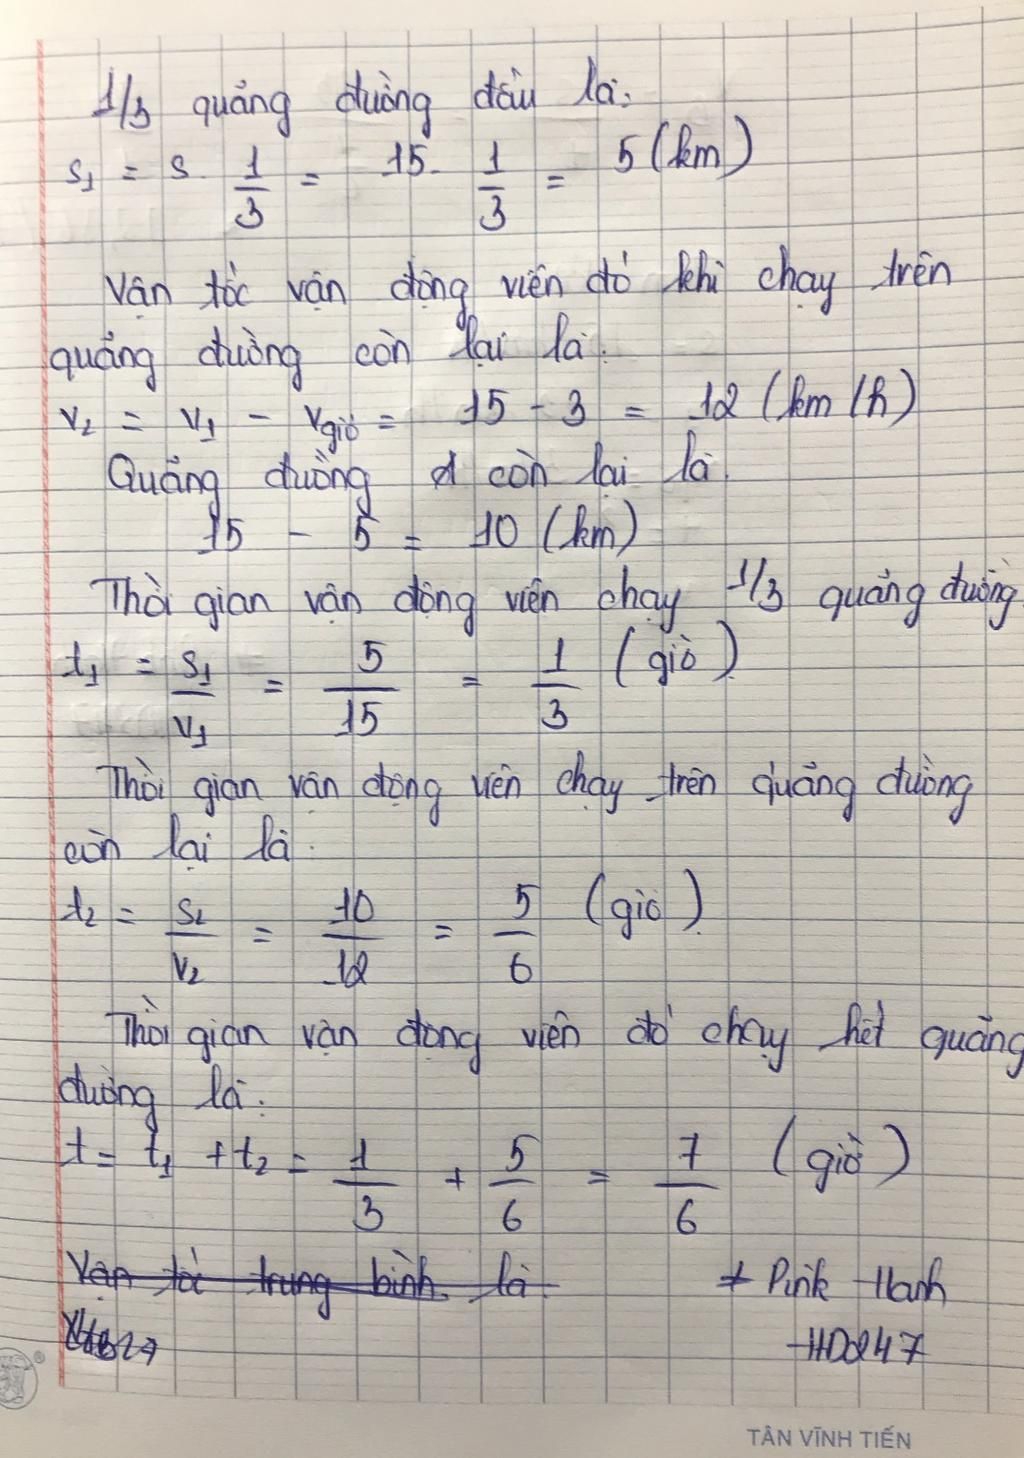 1/3 quảng đường đầu là:
s₁ = s. 1/3 = 15. 1/3 = 5 (km)
Vận tốc vận động viên đó khi chạy trên
quảng đường còn lại là:
v₂ = v₁ - v gió = 15 - 3 = 12 (km/h)
Quảng đường còn lại là.
15 - 5 = 10 (km)
Thời gian vận động viên chạy 1/3 quảng đường
t₁ = s₁/v₁ = 5/15 = 1/3 (giờ)
Thời gian vận động viên chạy trên quảng đường
còn lại là:
t₂ = s₂/v₂ = 10/12 = 5/6 (giờ)
Thời gian vận động viên đó chạy hết quảng
đường là:
t = t₁ + t₂ = 1/3 + 5/6 = 7/6 (giờ)
Vận tốc trung bình là
+ Pink Hanh
HD247
TÂN VĨNH TIẾN